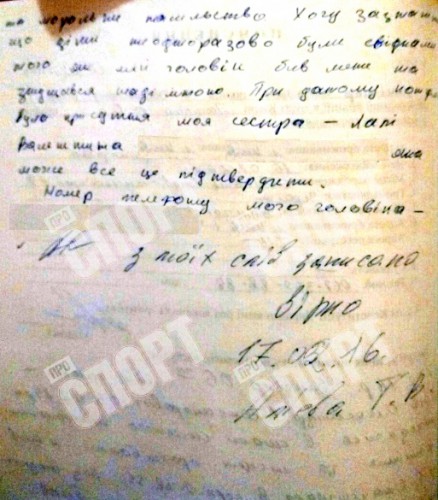 та моральне насильство. Хочу зазначити
що діти неодноразово були свідками
того як мій чоловік бив мене та
знущався наді мною. При даному
була присутня моя сестра – Лапі
Валентина яка
може все це підтвердити.
Номер телефону мого чоловіка –
з моїх слів записано
вірно
17.02.16.
Т. В.
ПРО СПОРТ
ПРО СПОРТ
ПРО СПОРТ
ПРО СПОРТ